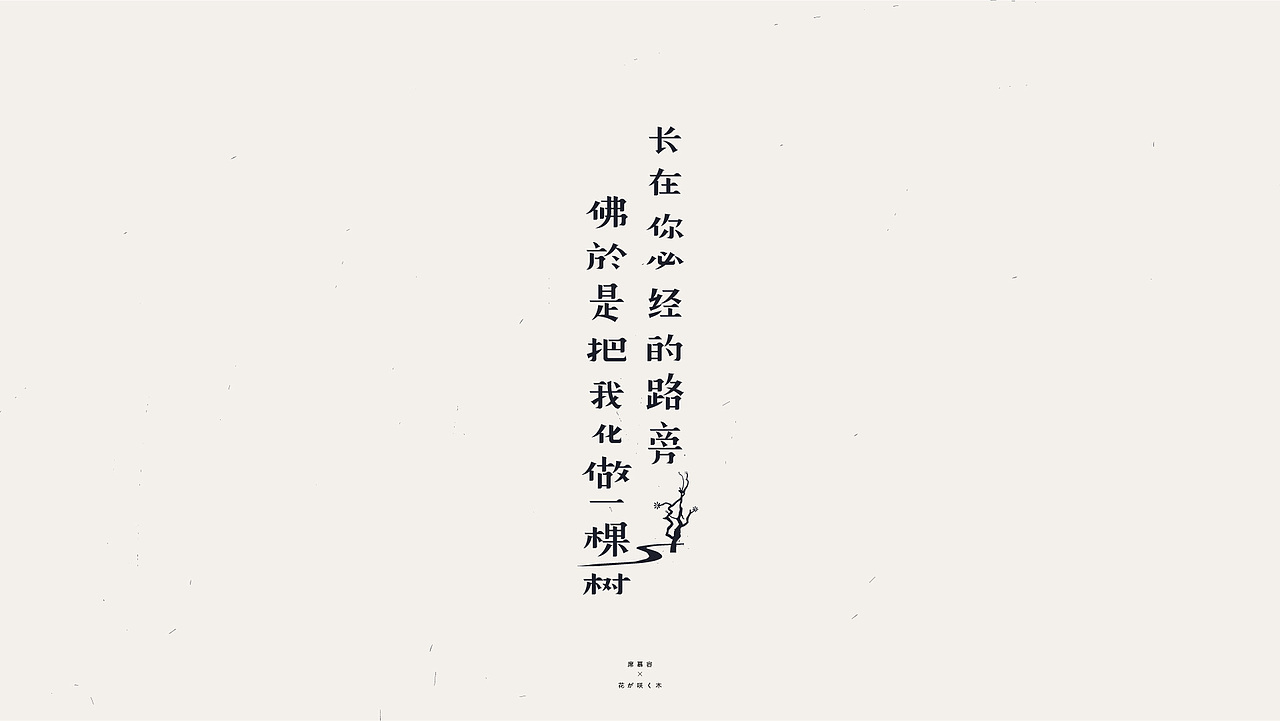 佛於是把我化做一棵树
长在你必经的路旁
席慕容
×
花が咲く木